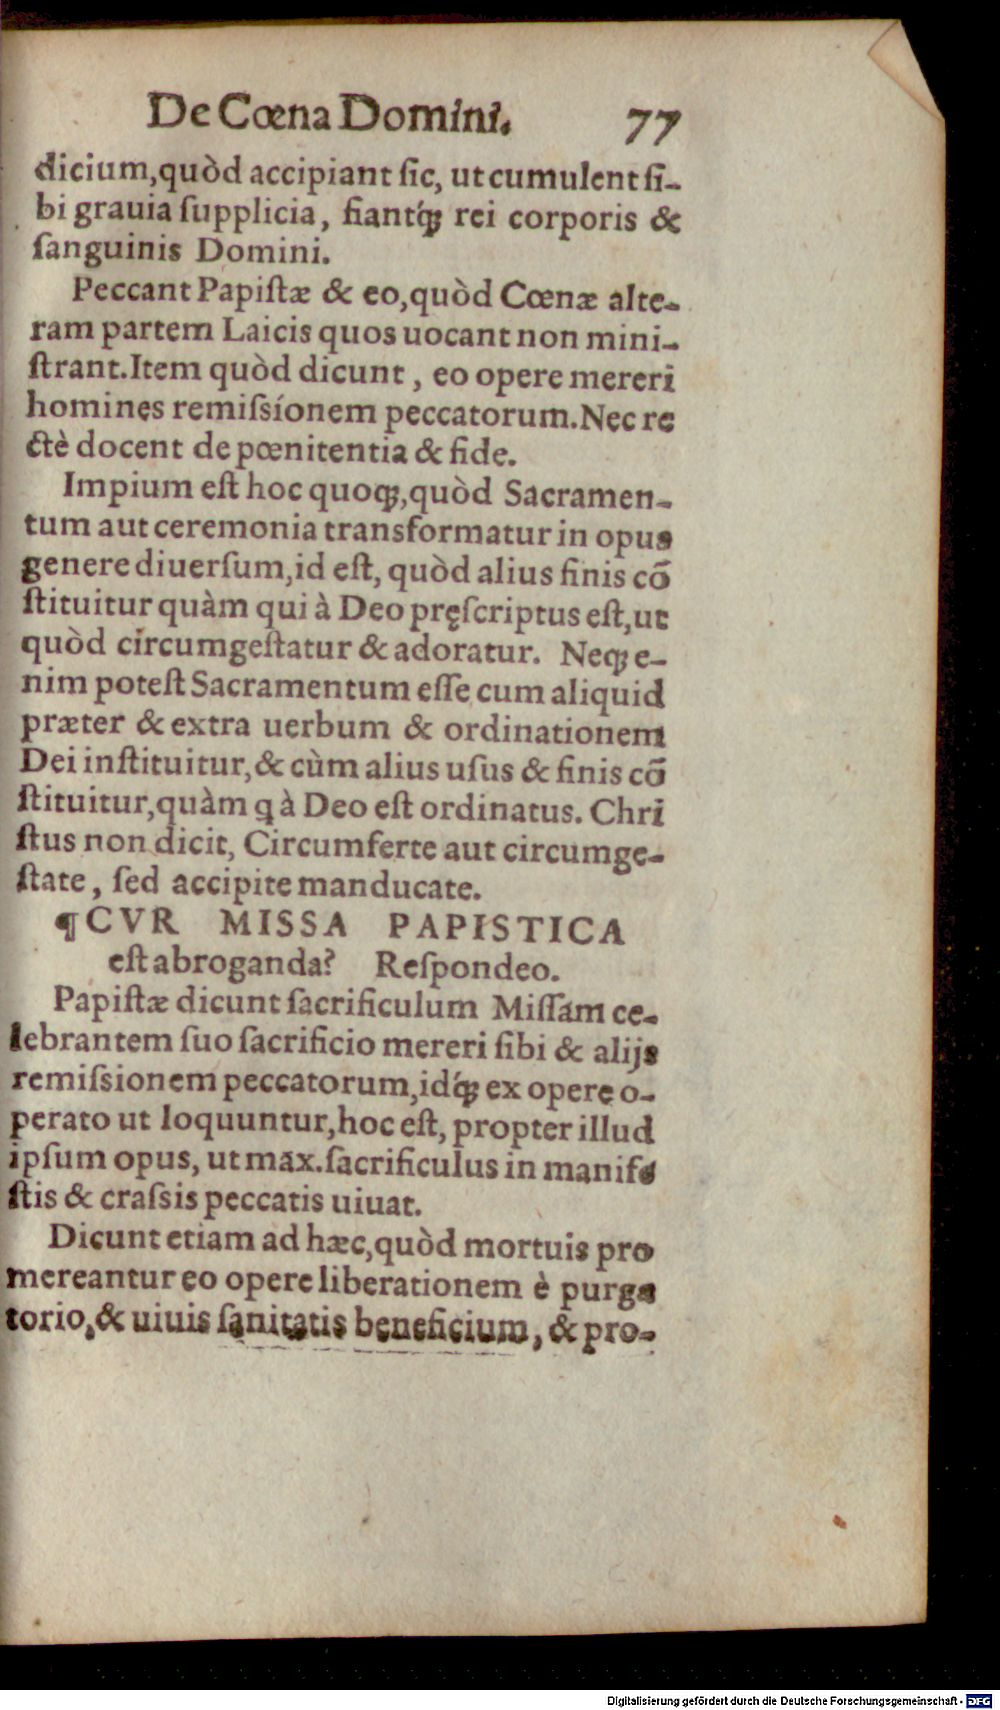 De Cœna Domini. 77
dicium,quòd accipiant ſic, ut cumulent ſi-
bi grauia ſupplicia, fiantq́ꝫ rei corporis &
ſanguinis Domini.
Peccant Papiſtæ & eo,quòd Cœnæ alte-
ram partem Laicis quos uocant non mini-
ſtrant.Item quòd dicunt, eo opere mereri
homines remiſsionem peccatorum.Nec re
ctè docent de pœnitentia & fide.
Impium eſt hoc quoqꝫ,quòd Sacramen-
tum aut ceremonia transformatur in opus
genere diuerſum,id eſt, quòd alius finis cō
ſtituitur quàm qui à Deo pręſcriptus eſt,ut
quòd circumgeſtatur & adoratur. Neqꝫ e-
nim poteſt Sacramentum eſſe cum aliquid
præter & extra uerbum & ordinationem
Dei inſtituitur,& cùm alius uſus & finis cō
ſtituitur,quàm q à Deo eſt ordinatus. Chri
ſtus non dicit, Circumferte aut circumge-
ſtate, ſed accipite manducate.
¶CVR MISSA PAPISTICA
eſt abroganda? Reſpondeo.
Papiſtæ dicunt ſacrificulum Miſſam ce-
lebrantem ſuo ſacrificio mereri ſibi & alijs
remiſsionem peccatorum,idq́ꝫ ex opere o-
perato ut loquuntur,hoc eſt, propter illud
ipſum opus, ut max.ſacrificulus in manife
ſtis & craſsis peccatis uiuat.
Dicunt etiam ad hæc,quòd mortuis pro
mereantur eo opere liberationem è purga
torio,& uiuis ſanitatis beneficium, & pro-
Digitalisierung gefördert durch die Deutsche Forschungsgemeinschaft - DFG